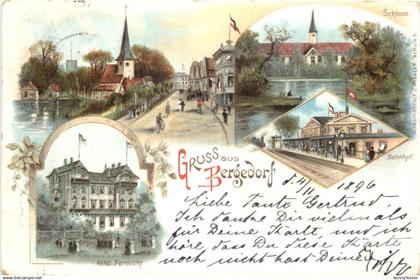 Schloss
Bahnhof.
Gruss aus
Bergedorf
Hôtel Fernsicht
d. 4/11 1896
Liebe Tante Gertrud.
Ich danke Dir vielmals
für Deine Karte, und ich
höre, dass Du diese Karte
noch nicht hast. Deine